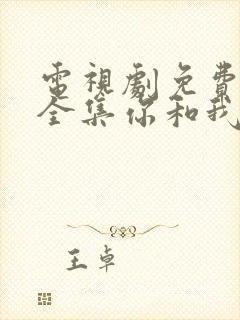 電視劇免費
全集你和我
王卓